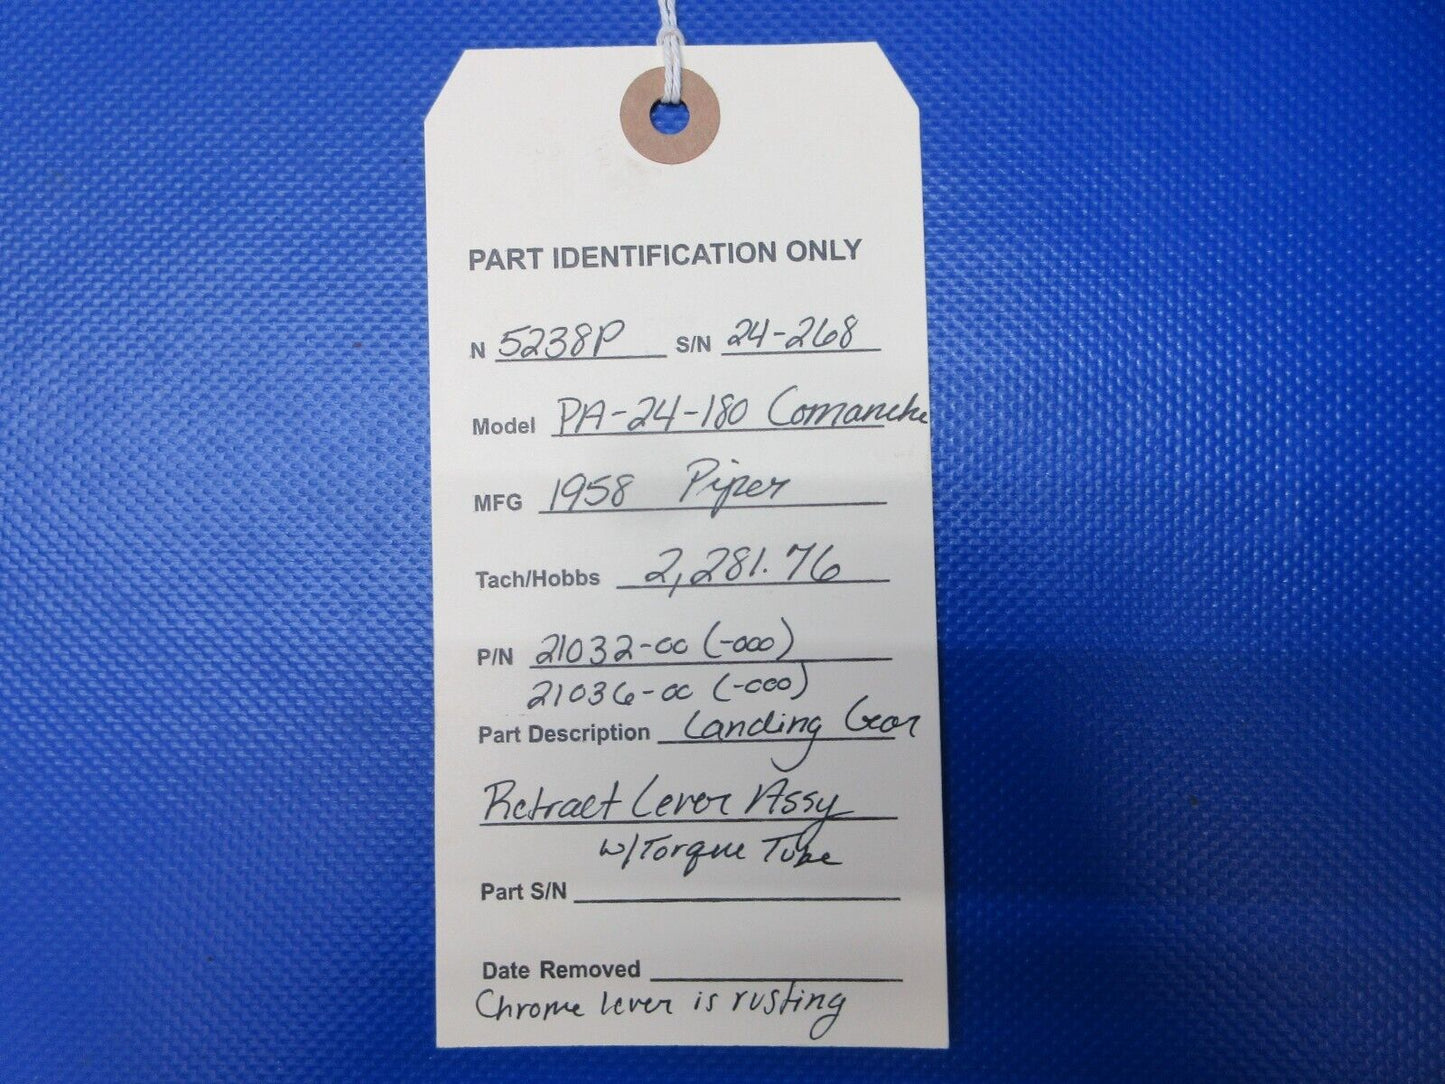 PART IDENTIFICATION ONLY
N 5238P S/N 24-268
Model PA-24-180 Comanche
MFG 1958 Piper
Tach/Hobbs 2,281.76
P/N 21032-00 (-000)
21036-00 (-000)
Part Description Landing Gear
Retract Lever Assy
w/Torque Tube
Part S/N
Date Removed
Chrome lever is rusting